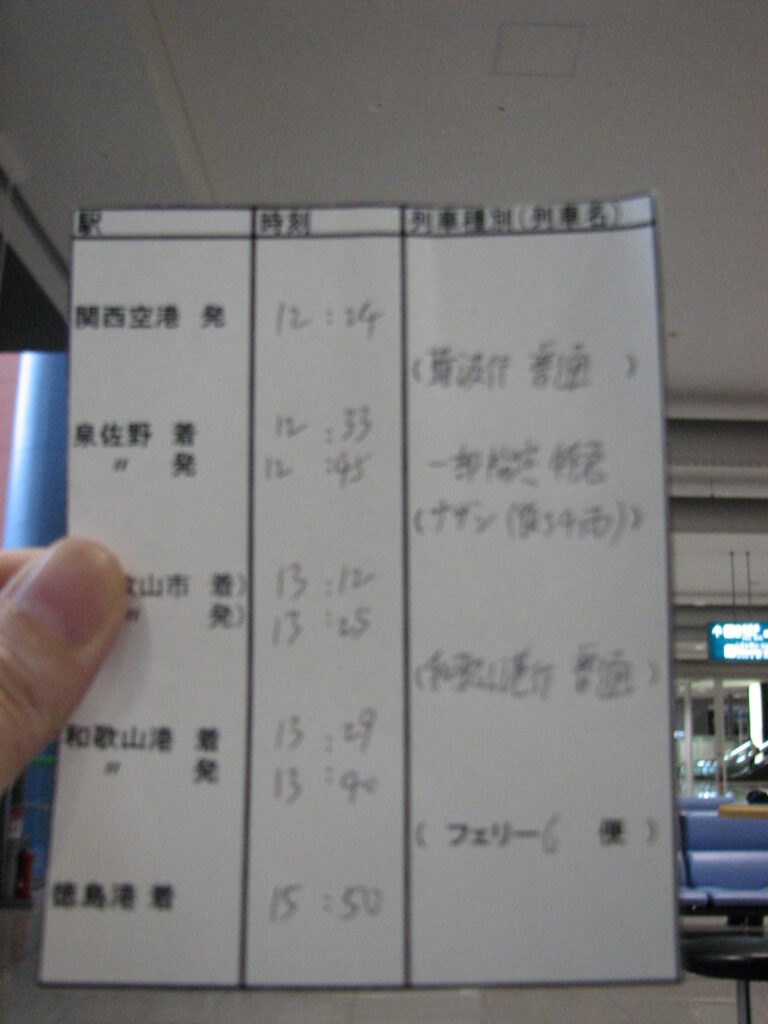 駅 時刻 列車種別(列車名)
関西空港 発 12:24
(難波行 普通 )
泉佐野 着 12:33
〃 発 12:45 一部指定 特急
(サザン(後ろ4両))
歌山市 着) 13:12
〃 発) 13:25
(和歌山港行 普通 )
和歌山港 着 13:29
〃 発 13:40
( フェリー6 便 )
徳島港 着 15:50